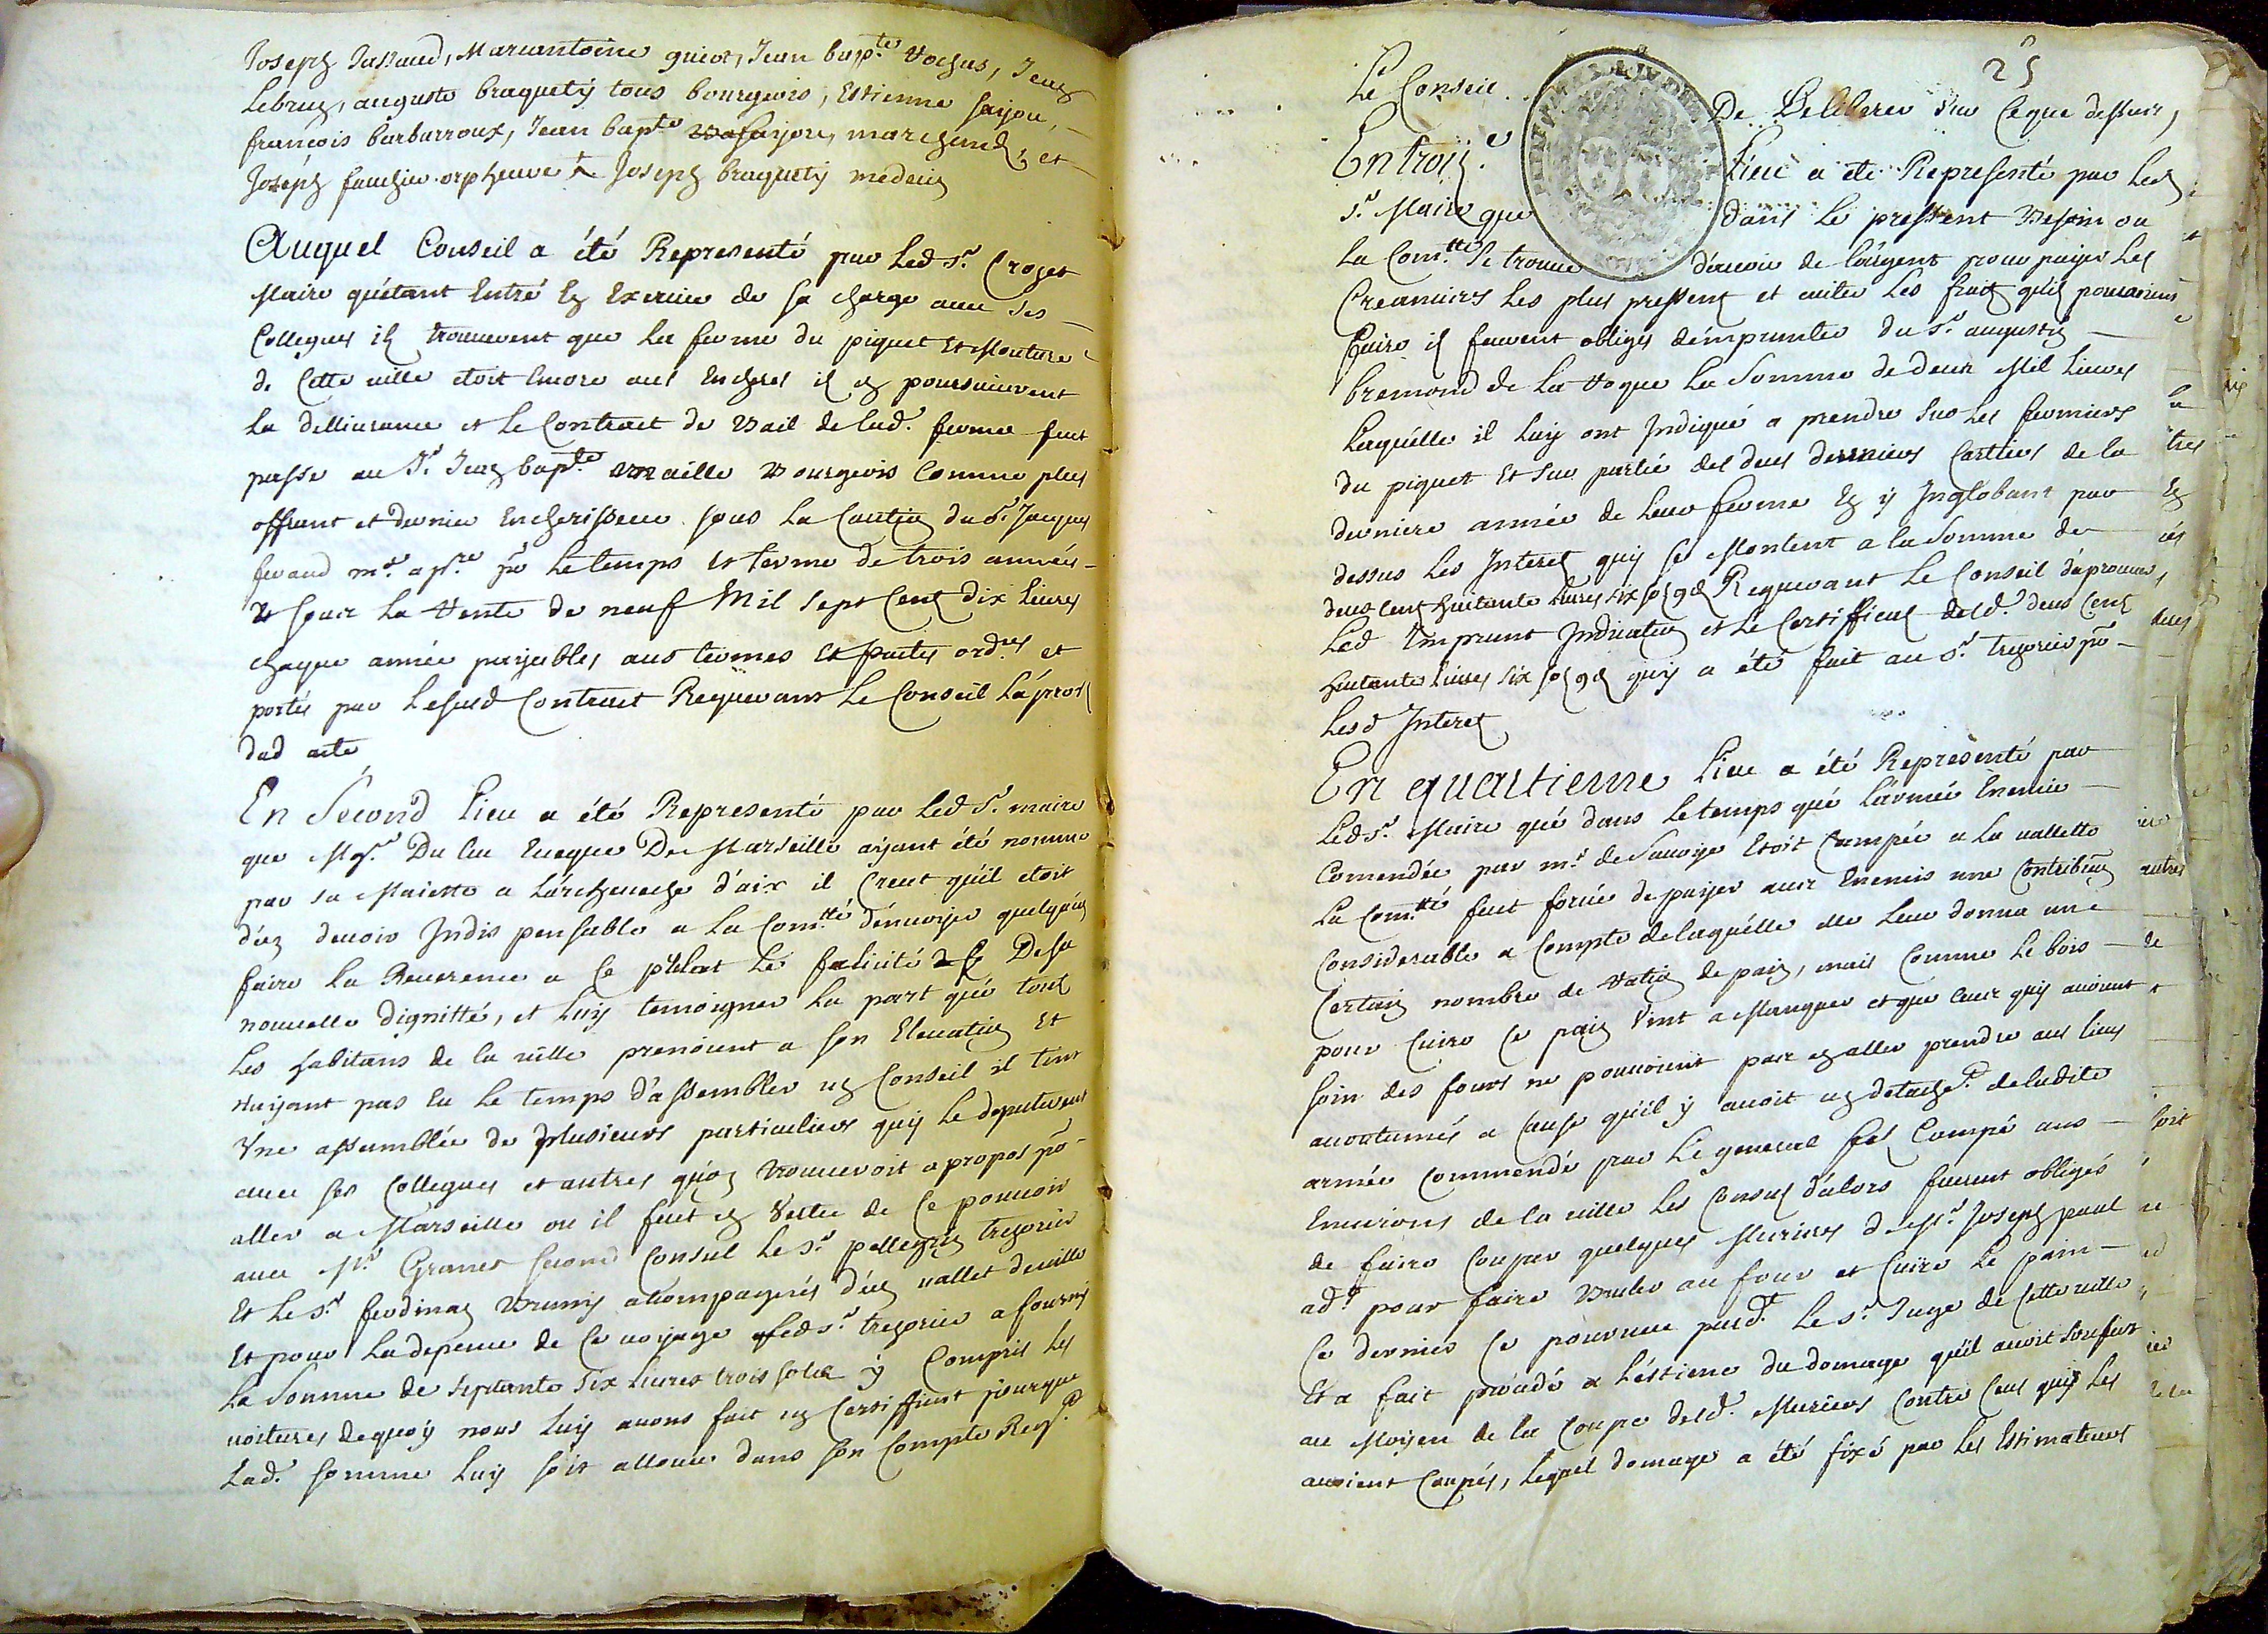 Joseph Jassaud, Marcantoine guiot, Jean bap.te Vochus, Jean
Lebrun, auguste braquety tous bourgeois, Estienne sajou,
françois barbarroux, Jean bapte sajou, marchand, et
Joseph orpheuve Joseph braquety medecin
Auquel Conseil a été Representé par Led Sr. Crozet
Maire qu'étant Entré En Exercice de sa charge avec ses
Collegues ils trouverent que La ferme du piquet Et Mouture
de Cette ville etoit Encore aus Encheres ils en poursuivirent
La dellivrance et Le Contract de Bail de lad. ferme feut
passé au Sr. Jean bapte. maille Bourgeois Comme plus
offrant et dernier Encherisseur sous La Caution du Sr. Jacques
feraud md. apre. pr Le temps et terme de trois années
et sous La Rente de neuf Mil sept Cens dix Livres
chaque année payables aus termes Et pactes ordres et
portés par Lesusd Contract Requerant Le Conseil L'apron
dud acte
En Second Lieu a été Representé par Led Sr. maire
que Mgr. Du Luc Eveque De Marseille ayant été nommé
par sa Majesté a L'archeveché d'aix il Creut qu'il etoit
d'un devoir Indispensable a La Com.tté d'envoyer quelqu'un
faire La Reverence a Ce prelat Le felicité De sa
nouvelle dignitté, et Luy temoigner La part que tous
Les habitans de la ville prenoient a son Elevation Et
n'ayant pas Eu Le temps d'assembler un Conseil il tint
Une assemblée de plusieurs particuliers quy Le deputerent
avec ses Collegues et autres qu'on trouveroit a propos pr
aller a Marseille ou il feut en Vertu de Ce pouvoir
avec Mr. Granet second Consul Le Sr. pellegrin tresorier
Et Le Sr. ferdinan Bruny acompagnés d'un vallet deville
Et pour La depence de Ce voyage Led Sr. tresorier a fourny
La Somme de septante six Livres trois sols y Compris Les
voitures dequoy nous Luy avons fait un Certifficat pour que
Lad. somme Luy soit allouée dans son Compte Reqt.
25
Le Conseil De Deliberer sur Ce que dessus,
En trois.e Lieu a été Representé par Led
Sr. Maire que dans Le pressent Besoin ou
La Com.tté Se trouve d'avoir de L'argent pour payer Les
Creanciers Les plus pressent et eviter Les frais qu'ils pourroient
faire ils feurent obligés d'emprunter du Sr. augustin
bremond de La Roque La Somme de deux Mil Livres
Laquelle il Luy ont Indiqué a prendre sur Les fermiers
du piquet Et sur partie des deus derniers Cartiers de la
derniere année de Leur ferme En y Inglobant par
dessus Les Interets quy se Montent a la Somme de
deus cens huitante Livres six so 9d Requerant Le Conseil d'aprouver,
Led Emprunt Indication et Le Certifficat desd. deus Cens
huitante Livres six so 9d quy a été fait au Sr. tresorier pr
Lesd Interets
En quatrieme Lieu a été Representé par
Led Sr. Maire que dans Le temps que L'armée Enemie
Comendée par mr. de Savoye Etoit Campée a La vallette
La Com.tté feut forcée de payer aux Enemis une Contribuon
Considerable a Compte de laquelle elle Leur donna un
Certain nombre de ration de pain, mais Comme Le bois
pour Cuire Ce pain Vint a Manquer et que Ceux quy avoient
soin des fours ne pouvoient pas en aller prendre aus lieus
acoutumés a Cause qu'il y avoit un detachet. deladite
armée Commendé par Le general fels Campé aus
Environs de la ville Les Consuls d'alors feurent obligés
de faire Couper quelques Muriers d Mr. Joseph paul
adt. pour faire Bruler au four et Cuire Le pain
Ce dernier Ce pourveu pardt. Le Sr. Juge de Cette ville
Et a fait procedé a L'éstime du domage qu'il avoit souffert
au Moyen de La Coupe desd. Muriers Contre Ceus quy Les
avoient Coupés, Lequel domage a été fixé par Les Estimateurs